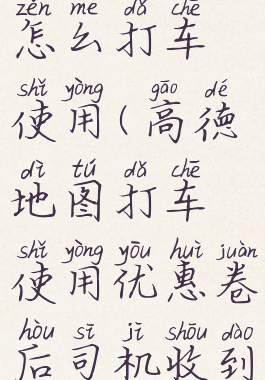 zěn me dǎ chē
怎么打车
shǐ yòng gāo dé
使用(高德
dì tú dǎ chē
地图打车
shǐ yòng yōu huì juàn
使用优惠卷
hòu sī jī shōu dào
后司机收到